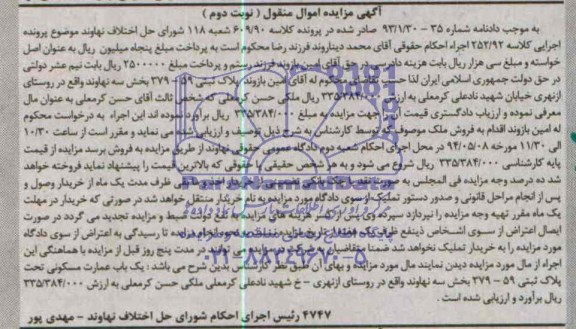 آگهی مزایده اموال منقول ( نوبت دوم )
به موجب دادنامه شماره ۳۵ - ۹۳/۱/۳۰ صادر شده در پرونده کلاسه ۶۰۹/۹۰ شعبه ۱۱۸ شورای حل اختلاف نهاوند موضوع پرونده
اجرایی کلاسه ۲۵۲/۹۲ اجراء احکام حقوقی آقای محمد دیناروند فرزند رضا محکوم است به پرداخت مبلغ پنجاه میلیون ریال به عنوان اصل
خواسته و مبلغ سی هزار ریال بابت هزینه دادرسی در حق آقای امین بازوند فرزند رستم و پرداخت مبلغ ۲۵۰۰۰۰۰ ریال بابت نیم عشر دولتی
در حق دولت جمهوری اسلامی ایران لذا حسب تقاضای محکوم له آقای امین بازوند پلاک ثبتی ۵۹ - ۳۷۹ بخش سه نهاوند واقع در روستای
ازنهری خیابان شهید نادعلی کرمعلی به ارزش ۳۳۵/۳۸۴/۰۰۰ ریال ملکی حسن کرمعلی که شخص ثالث آقای حسن کرمعلی به عنوان مال
معرفی نموده و ارزیاب دادگستری قیمت آن را جهت مزایده به مبلغ ۳۳۵/۳۸۴/۰۰۰ ریال برآورد نموده اند این اجراء به درخواست محکوم
له امین بازوند اقدام به فروش ملک موصوف که توسط کارشناس به شرح ذیل توصیف و ارزیابی شده می نماید و مقرر است از ساعت ۱۰/۳۰
الی ۱۱/۳۰ مورخه ۹۴/۰۵/۰۸ در محل اجرای احکام شعبه دوم دادگاه عمومی حقوقی نهاوند از طریق مزایده به فروش برسد مزایده از قیمت
پایه کارشناسی ۳۳۵/۳۸۴/۰۰۰ ریال شروع می شود و به هر شخص حقیقی یا حقوقی که بالاترین قیمت را پیشنهاد نماید فروخته خواهد
شد ده درصد وجه مزایده فی المجلس به صورت نقد یا چک بانکی تضمینی از خریدار اخذ و مابقی ظرف مدت یک ماه از خریدار وصول و
پس از انجام مراحل قانونی و صدور دستور تملیک از سوی دادگاه مورد مزایده به نام خریدار منتقل خواهد شد در صورتی که خریدار در مهلت
یک ماه مقرر تهیه وجه مزایده را نپردازد سپرده وی پس از کسر هزینه مزایده به نفع دولت ضبط و مزایده تجدید می گردد در صورت
ایصال اعتراض از سوی اشخاص ذینفع ظرف یک هفته از تاریخ مزایده نسبت به نحو انجام مزایده تا رسیدگی به اعتراض از سوی دادگاه
مورد مزایده را به خریدار تملیک نخواهد شد ضمنا متقاضیان به شرکت در مزایده می توانند در مدت پنج روز قبل از مزایده با هماهنگی این
اجراء از مال مورد مزایده دیدن نمایند مال مورد مزایده و بهای آن طبق نظر کارشناس بدین شرح می باشد : یک باب عمارت مسکونی تحت
پلاک ثبتی ۵۹ - ۳۷۹ بخش سه نهاوند واقع در روستای ازنهری - خ شهید نادعلی کرمعلی ملکی حسن کرمعلی به ارزش ۳۳۵/۳۸۴/۰۰۰
ریال برآورد و ارزیابی شده است .
۴۷۴۷ رئیس اجرای احکام شورای حل اختلاف نهاوند - مهدی پور
۰۲۱-۸۸۳۴۹۶۷۰-۵